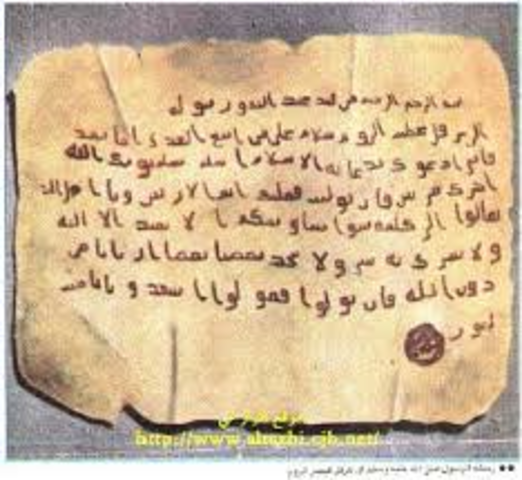 الله الرحمن الرحيم من محمد عبد الله ورسوله
الى هرقل عظيم الروم سلام على من اتبع الهدى اما بعد
فانى ادعوك بدعاية الاسلام اسلم تسلم يوتك الله
اجرك مرتين فان توليت فعليك اثم الاريسين ويا اهل الك
تعالوا الى كلمة سوا بيننا وبينكم الا نعبد الا الله
ولا نشرك به شيا ولا يتخذ بعضنا بعضا اربابا من
دون الله فان تولوا فقولوا اشهدوا بانا مس
لمون
موقع
http://www.alrazhi.cjb.net/
رسالة الرسول صلى الله عليه وسلم إلى هرقل قيصر الروم